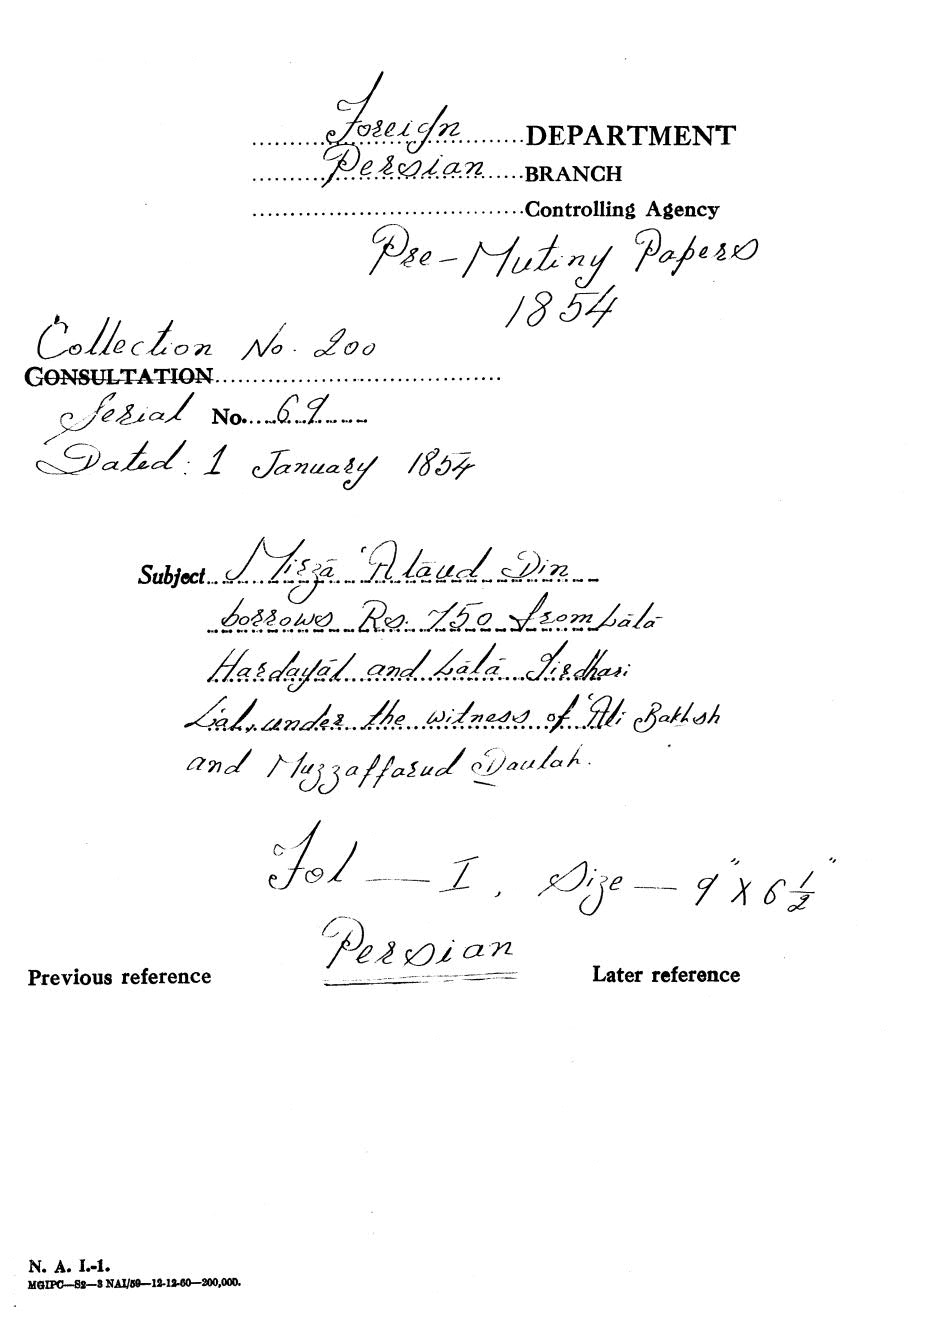 Foreign DEPARTMENT
Persian BRANCH
Controlling Agency
Pre-Mutiny Papers
1854
Collection No. 200
CONSULTATION
Serial No. 69
Dated: 1 January 1854
Subject Mirzā 'Alāud Din
borrows Rs. 750 from Lālā
Hardayāl and Lālā Girdhari
Lal, under the witness of 'Ali Bakhsh
and Muzzaffarud Daulah.
Fol — I, Size — 9" X 6 1/2"
Persian
Previous reference Later reference
N. A. I.-1.
MGIPC—S2—3 NAI/59—12-12-60—200,000.